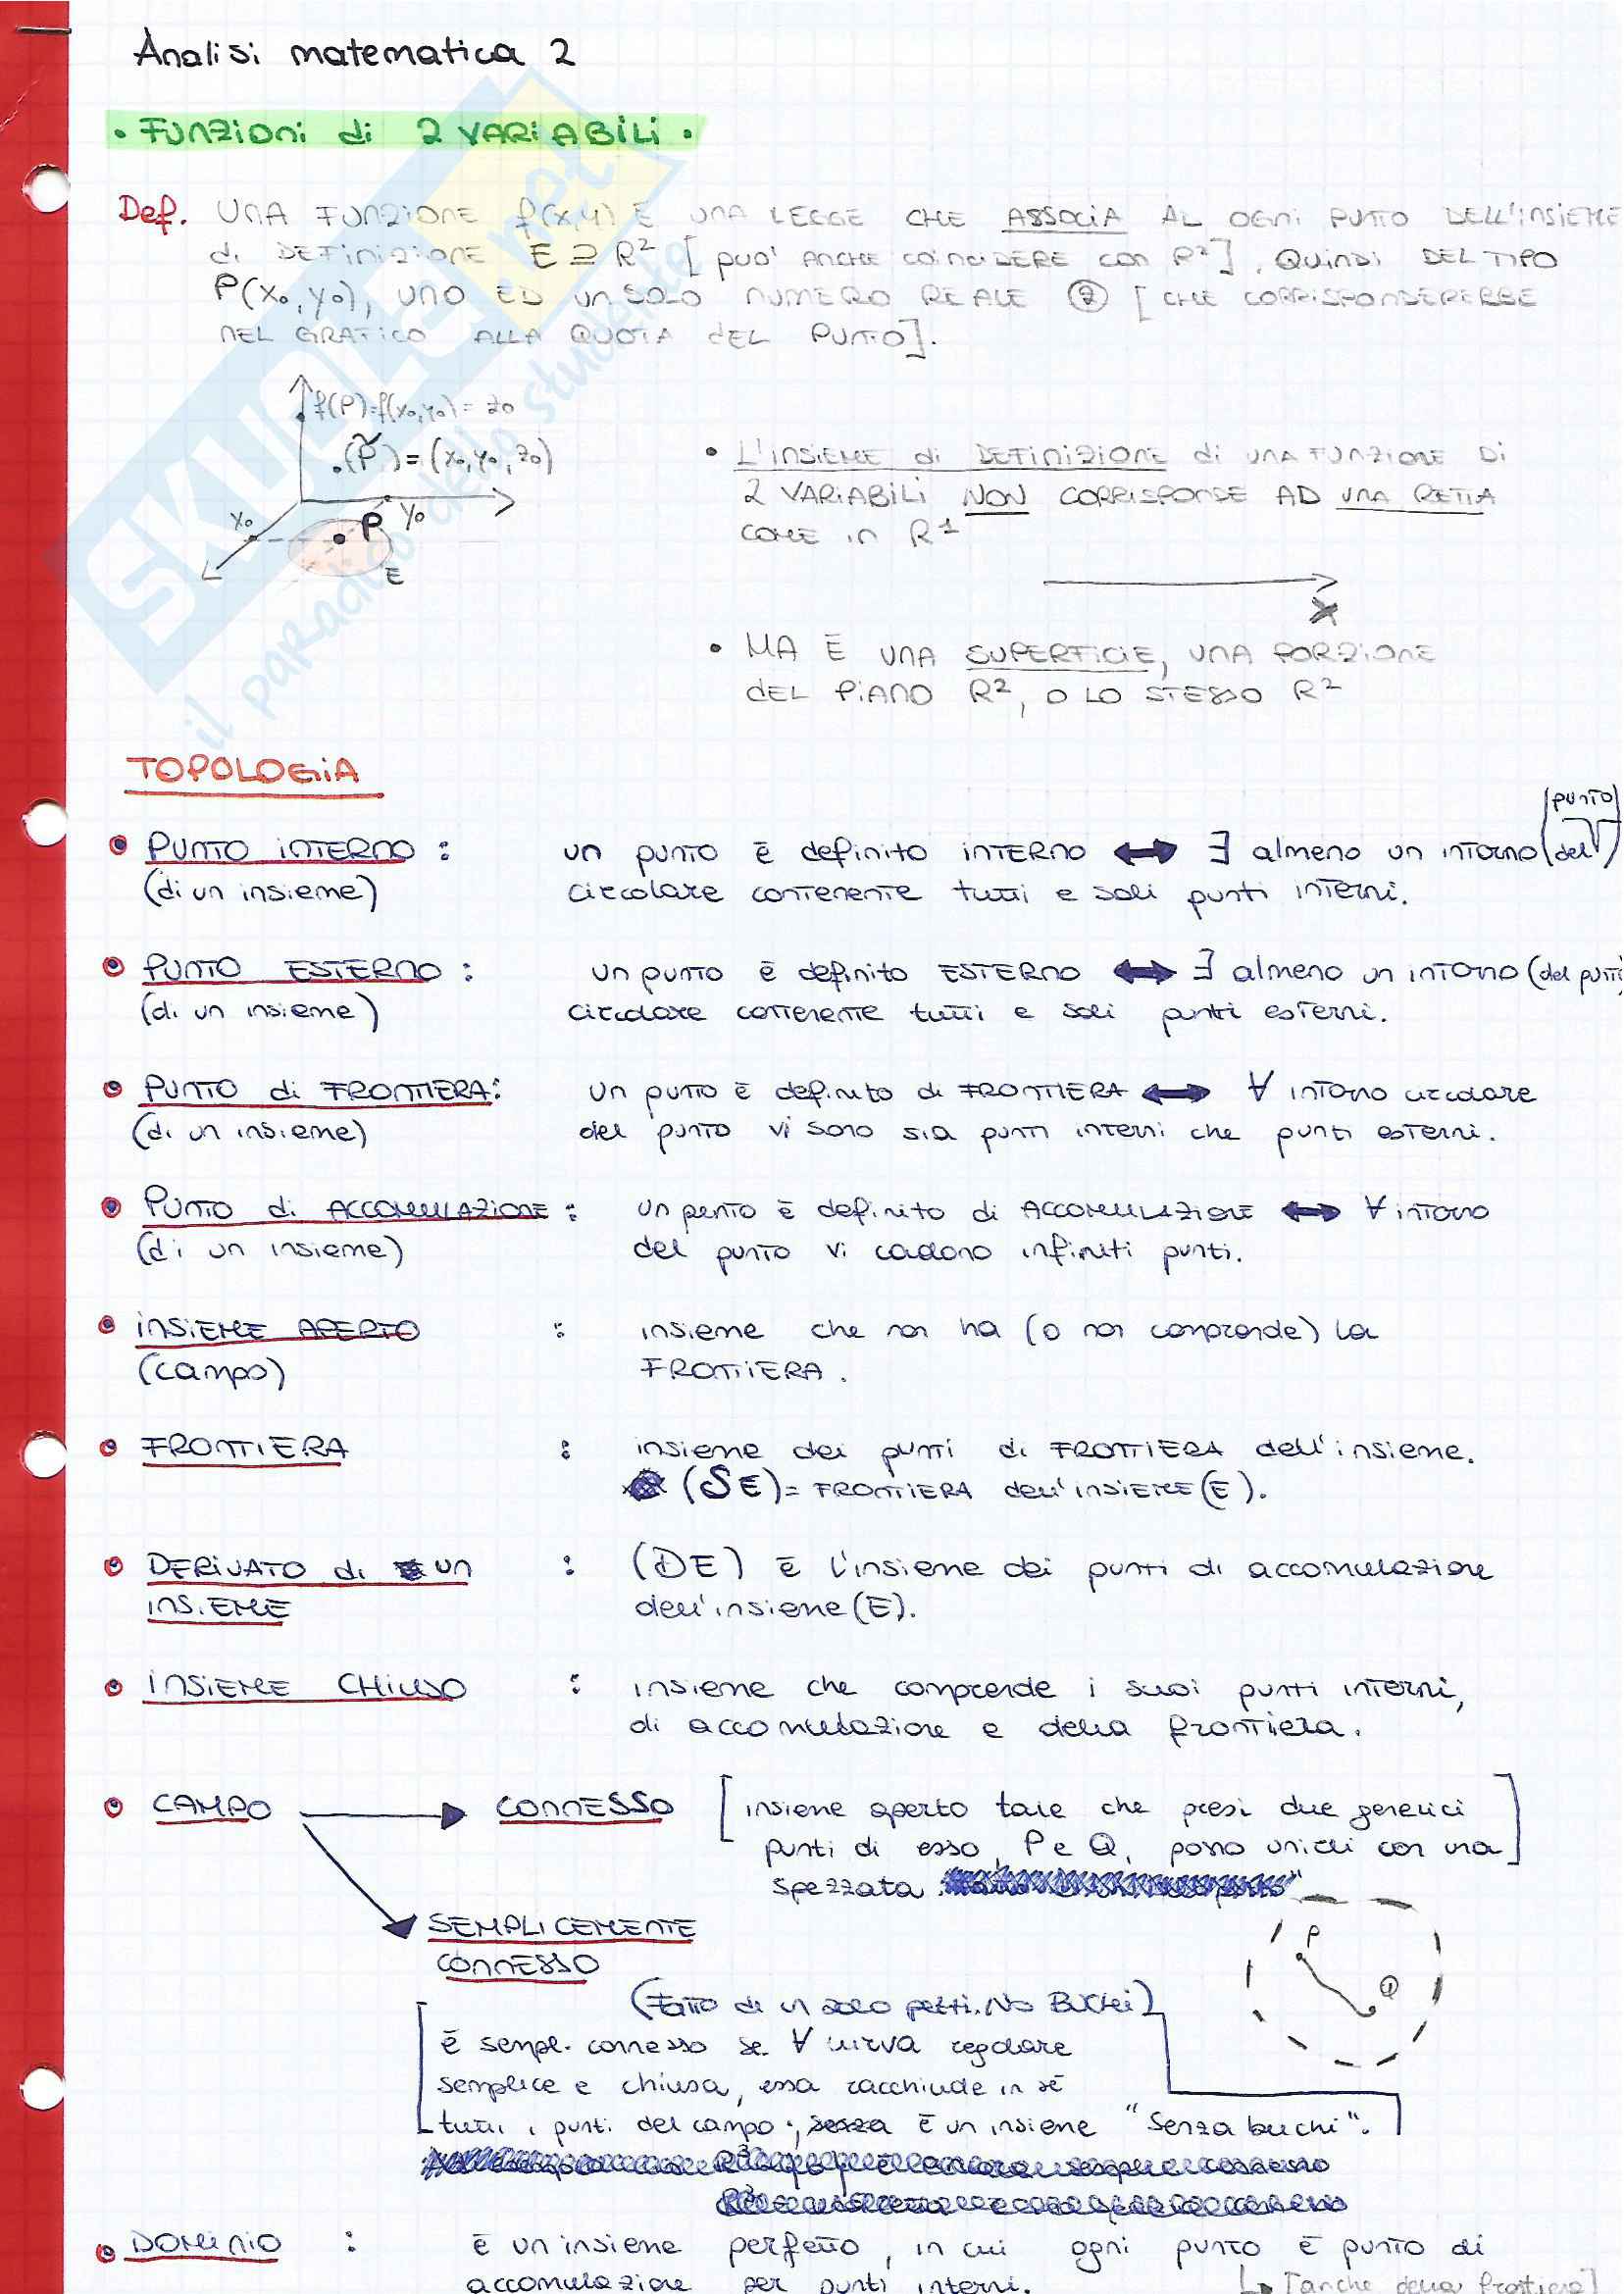 Analisi matematica 2
• FUNZIONI di 2 VARIABILI •
Def. UNA FUNZIONE f(x,y) È UNA LEGGE CHE ASSOCIA AL OGNI PUNTO DELL'INSIEME
di DEFINIZIONE E ⊇ R² [PUO' ANCHE COINCIDERE CON R²], QUINDI DEL TIPO
P(x₀,y₀), UNO ED UN SOLO NUMERO REALE (z) [CHE CORRISPONDEREBBE
NEL GRAFICO ALLA QUOTA DEL PUNTO].
f(P)=f(x₀,y₀)=z₀
(P̃)=(x₀,y₀,z₀)
x₀
P
y₀
E
• L'INSIEME di DEFINIZIONE di UNA FUNZIONE DI
2 VARIABILI NON CORRISPONDE AD UNA RETTA
COME IN R¹
x
• MA È UNA SUPERFICIE, UNA PORZIONE
DEL PIANO R², O LO STESSO R²
SKUOLA.net
il paradiso dello studente
TOPOLOGIA
• PUNTO INTERNO : un punto è definito INTERNO ⟷ ∃ almeno un intorno (del punto)
(di un insieme) circolare contenente tutti e soli punti interni.
• PUNTO ESTERNO : un punto è definito ESTERNO ⟷ ∃ almeno un intorno (del punto)
(di un insieme) circolare contenente tutti e soli punti esterni.
• PUNTO di FRONTIERA : un punto è definito di FRONTIERA ⟷ ∀ intorno circolare
(di un insieme) del punto vi sono sia punti interni che punti esterni.
• PUNTO di ACCOMULAZIONE : un punto è definito di ACCOMULAZIONE ⟷ ∀ intorno
(di un insieme) del punto vi cadono infiniti punti.
• INSIEME APERTO : insieme che non ha (o non comprende) la
(campo) FRONTIERA.
• FRONTIERA : insieme dei punti di FRONTIERA dell'insieme.
(δE) = FRONTIERA dell'INSIEME (E).
• DERIVATO di UN : (DE) è l'insieme dei punti di accomulazione
INSIEME dell'insieme (E).
• INSIEME CHIUSO : insieme che comprende i suoi punti interni,
di accomulazione e della frontiera.
• CAMPO → CONNESSO [insieme aperto tale che presi due generici
punti di esso, P e Q, posso unirli con una]
spezzata.
P
Q
SEMPLICEMENTE
CONNESSO
(Fatto di un solo pezzi. No BUCHI)
è sempl. connesso se ∀ curva regolare
semplice e chiusa, essa racchiude in sé
tutti i punti del campo; è un insieme "senza buchi".
• DOMINIO : è un insieme perfetto, in cui ogni punto è punto di
accomulazione per punti interni. ↳ [anche della frontiera]